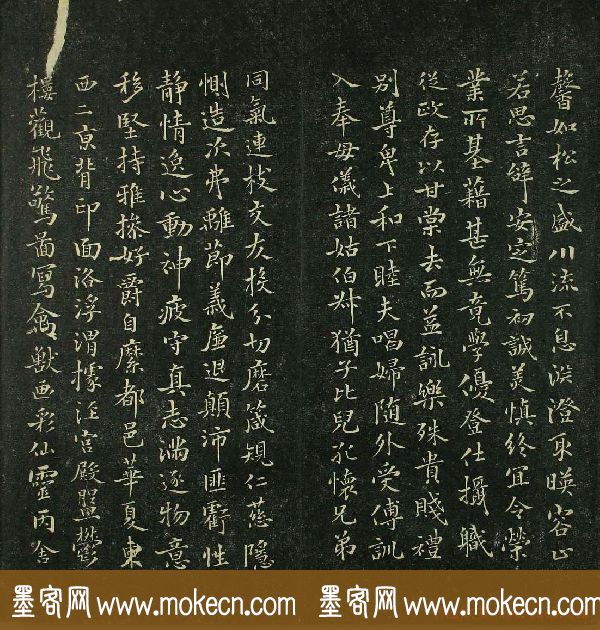 馨如松之盛川流不息淵澄取暎容止
若思言辭安定篤初誠美慎終宜令榮
業所基藉甚無竟學優登仕攝職
從政存以甘棠去而益詠樂殊貴賤禮
別尊卑上和下睦夫唱婦隨外受傅訓
入奉母儀諸姑伯叔猶子比兒孔懷兄弟
同氣連枝交友投分切磨箴規仁慈隱
惻造次弗離節義廉退顛沛匪虧性
靜情逸心動神疲守真志滿逐物意
移堅持雅操好爵自縻都邑華夏東
西二京背邙面洛浮渭據涇宮殿盤鬱
樓觀飛驚圖寫禽獸画彩仙靈丙舍
墨客网 www.mokecn.com 墨客网 www.mokecn.com